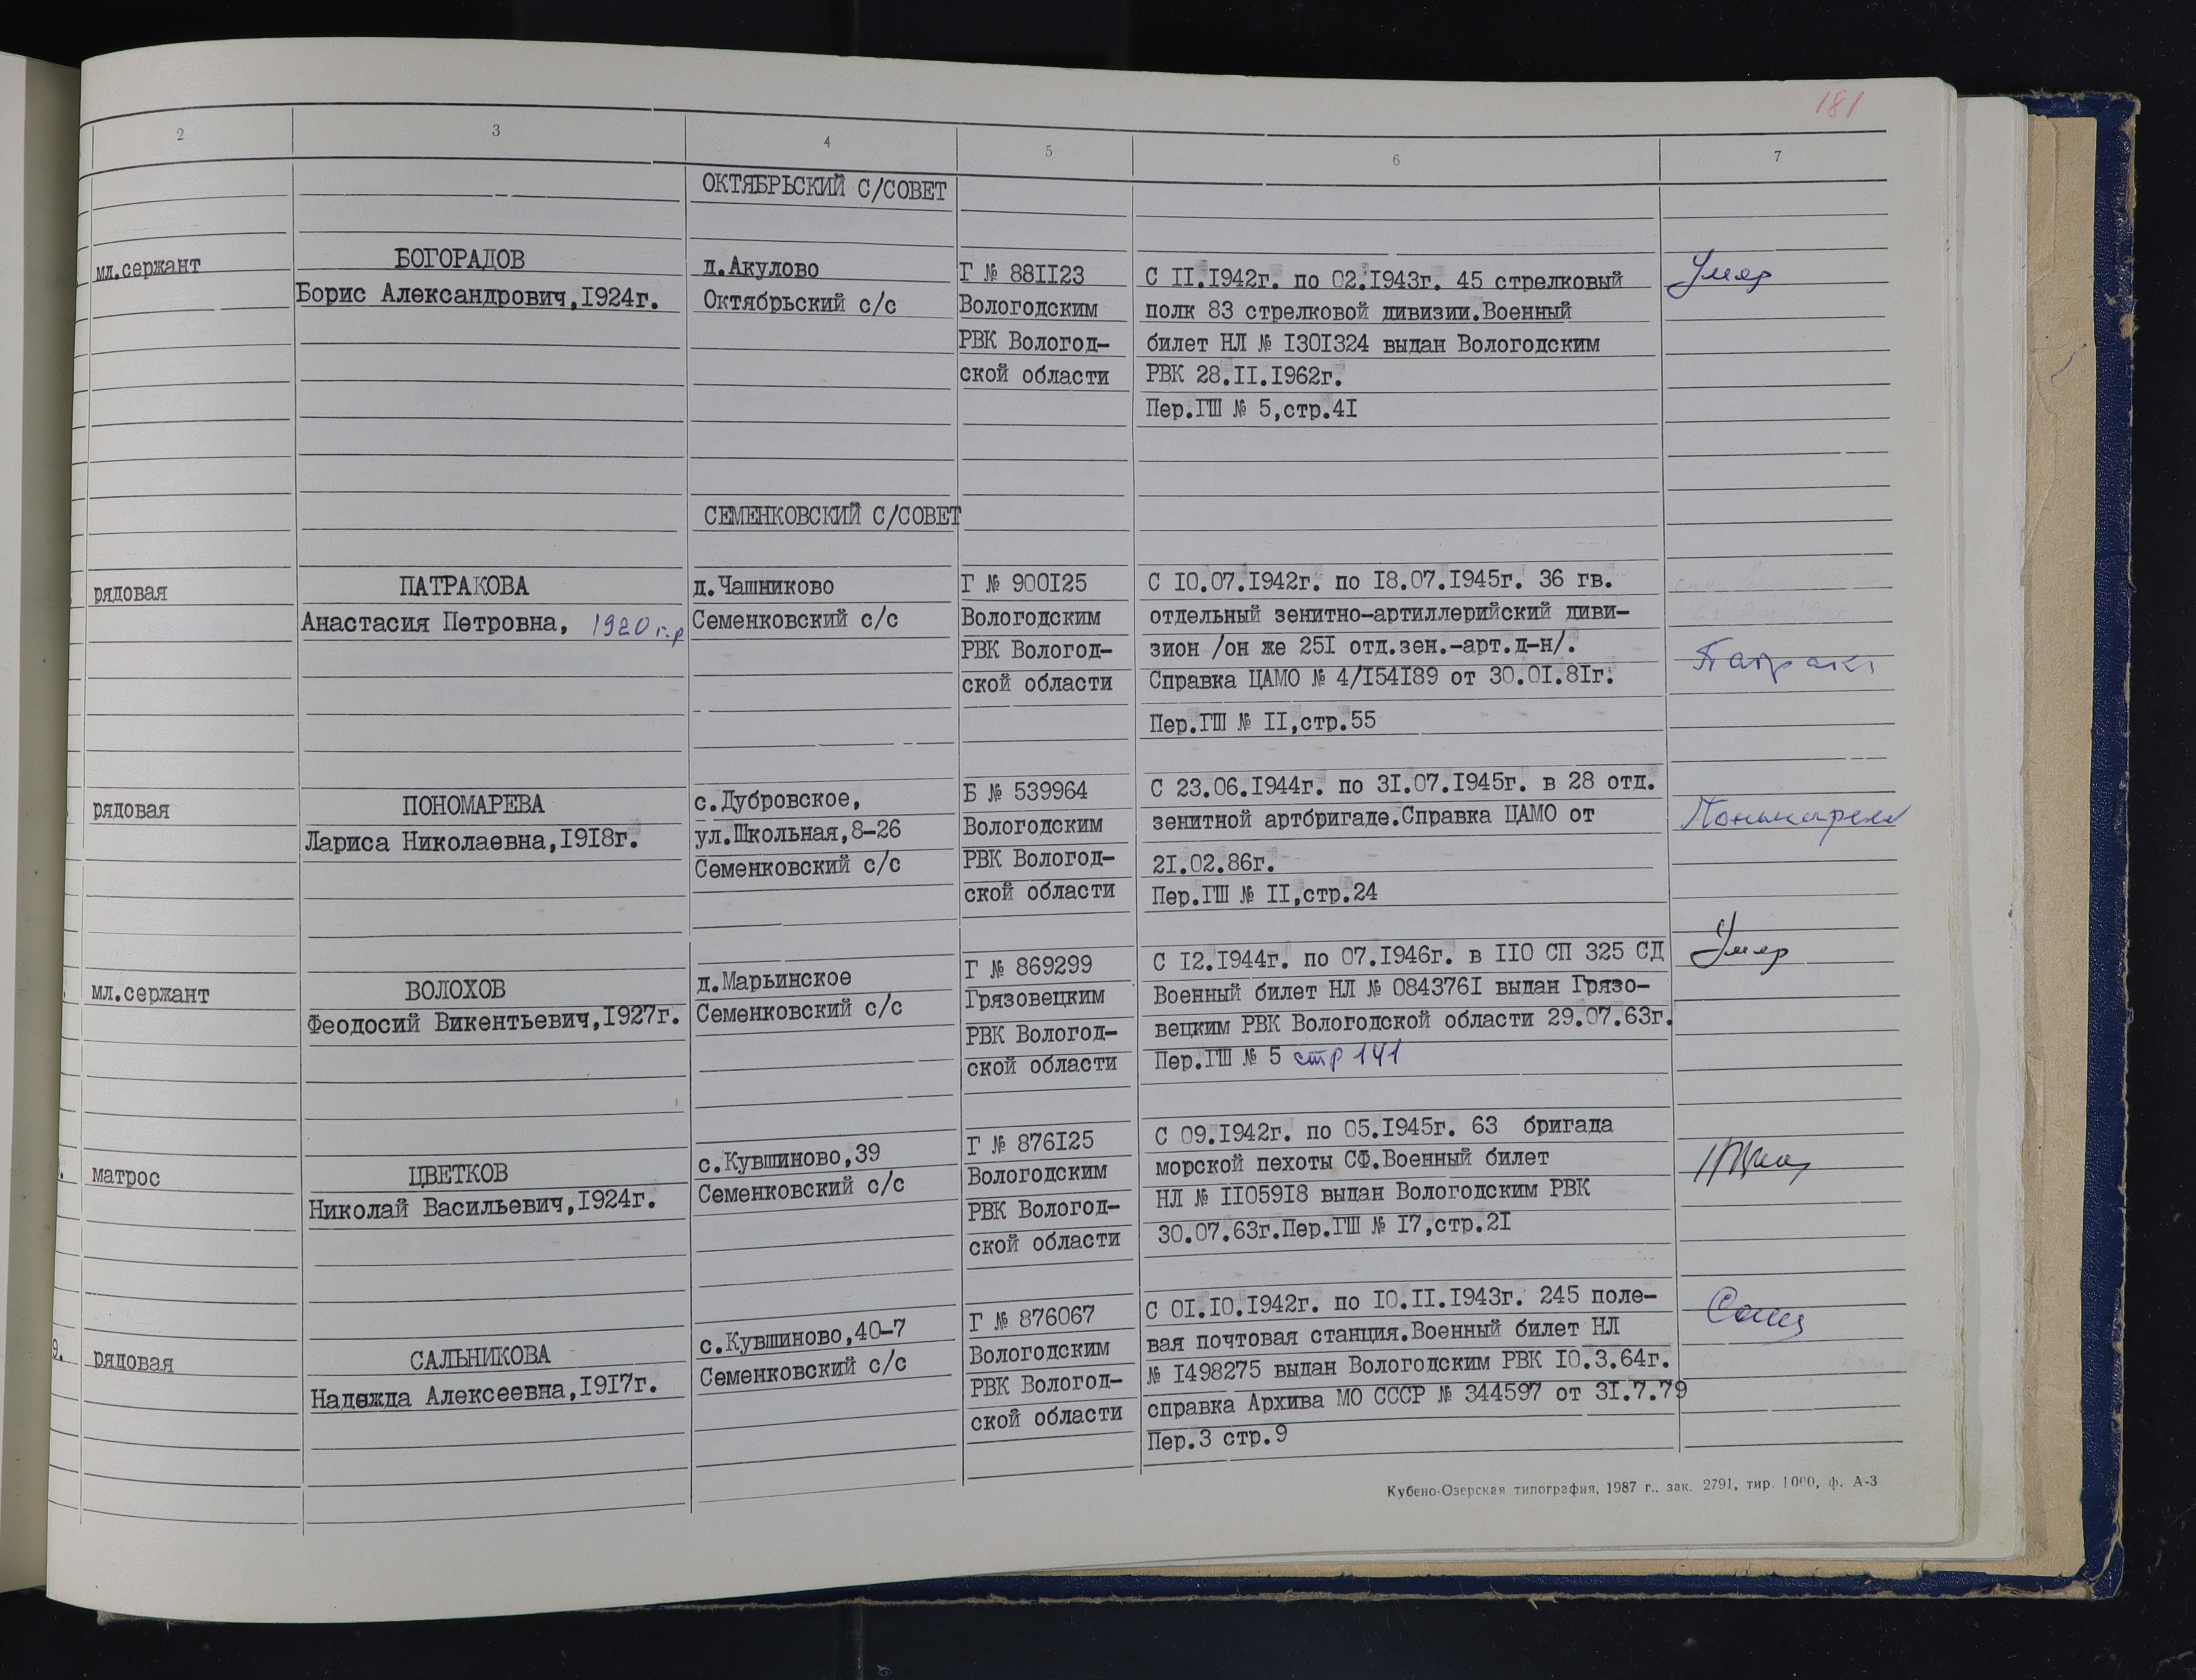 181
2 3 4 5 6 7
ОКТЯБРЬСКИЙ С/СОВЕТ
мл.сержант
БОГОРАДОВ
Борис Александрович,I924г.
д.Акулово
Октябрьский с/с
Г № 88II23
Вологодским
РВК Вологод-
ской области
С II.I942г. по 02.I943г. 45 стрелковый
полк 83 стрелковой дивизии.Военный
билет НЛ № I30I324 выдан Вологодским
РВК 28.II.I962г.
Пер.ГШ № 5,стр.4I
Умер
СЕМЕНКОВСКИЙ С/СОВЕТ
рядовая
ПАТРАКОВА
Анастасия Петровна, 1920 г.р
д.Чашниково
Семенковский с/с
Г № 900I25
Вологодским
РВК Вологод-
ской области
С I0.07.I942г. по I8.07.I945г. 36 гв.
отдельный зенитно-артиллерийский диви-
зион /он же 25I отд.зен.-арт.д-н/.
Справка ЦАМО № 4/I54I89 от 30.0I.8Iг.
Пер.ГШ № II,стр.55
рядовая
ПОНОМАРЕВА
Лариса Николаевна,I9I8г.
с.Дубровское,
ул.Школьная,8-26
Семенковский с/с
Б № 539964
Вологодским
РВК Вологод-
ской области
С 23.06.I944г. по 3I.07.I945г. в 28 отд.
зенитной артбригаде.Справка ЦАМО от
2I.02.86г.
Пер.ГШ № II,стр.24
мл.сержант
ВОЛОХОВ
Феодосий Викентьевич,I927г.
д.Марьинское
Семенковский с/с
Г № 869299
Грязовецким
РВК Вологод-
ской области
С I2.I944г. по 07.I946г. в II0 СП 325 СД
Военный билет НЛ № 084376I выдан Грязо-
вецким РВК Вологодской области 29.07.63г.
Пер.ГШ № 5 стр 141
Умер
матрос
ЦВЕТКОВ
Николай Васильевич,I924г.
с.Кувшиново,39
Семенковский с/с
Г № 876I25
Вологодским
РВК Вологод-
ской области
С 09.I942г. по 05.I945г. 63 бригада
морской пехоты СФ.Военный билет
НЛ № II059I8 выдан Вологодским РВК
30.07.63г.Пер.ГШ № I7,стр.2I
9.
рядовая
САЛЬНИКОВА
Надежда Алексеевна,I9I7г.
с.Кувшиново,40-7
Семенковский с/с
Г № 876067
Вологодским
РВК Вологод-
ской области
С 0I.I0.I942г. по I0.II.I943г. 245 поле-
вая почтовая станция.Военный билет НЛ
№ I498275 выдан Вологодским РВК I0.3.64г.
справка Архива МО СССР № 344597 от 3I.7.79
Пер.3 стр.9
Кубено-Озерская типография, 1987 г., зак. 2791, тир. 1000, ф. А-3